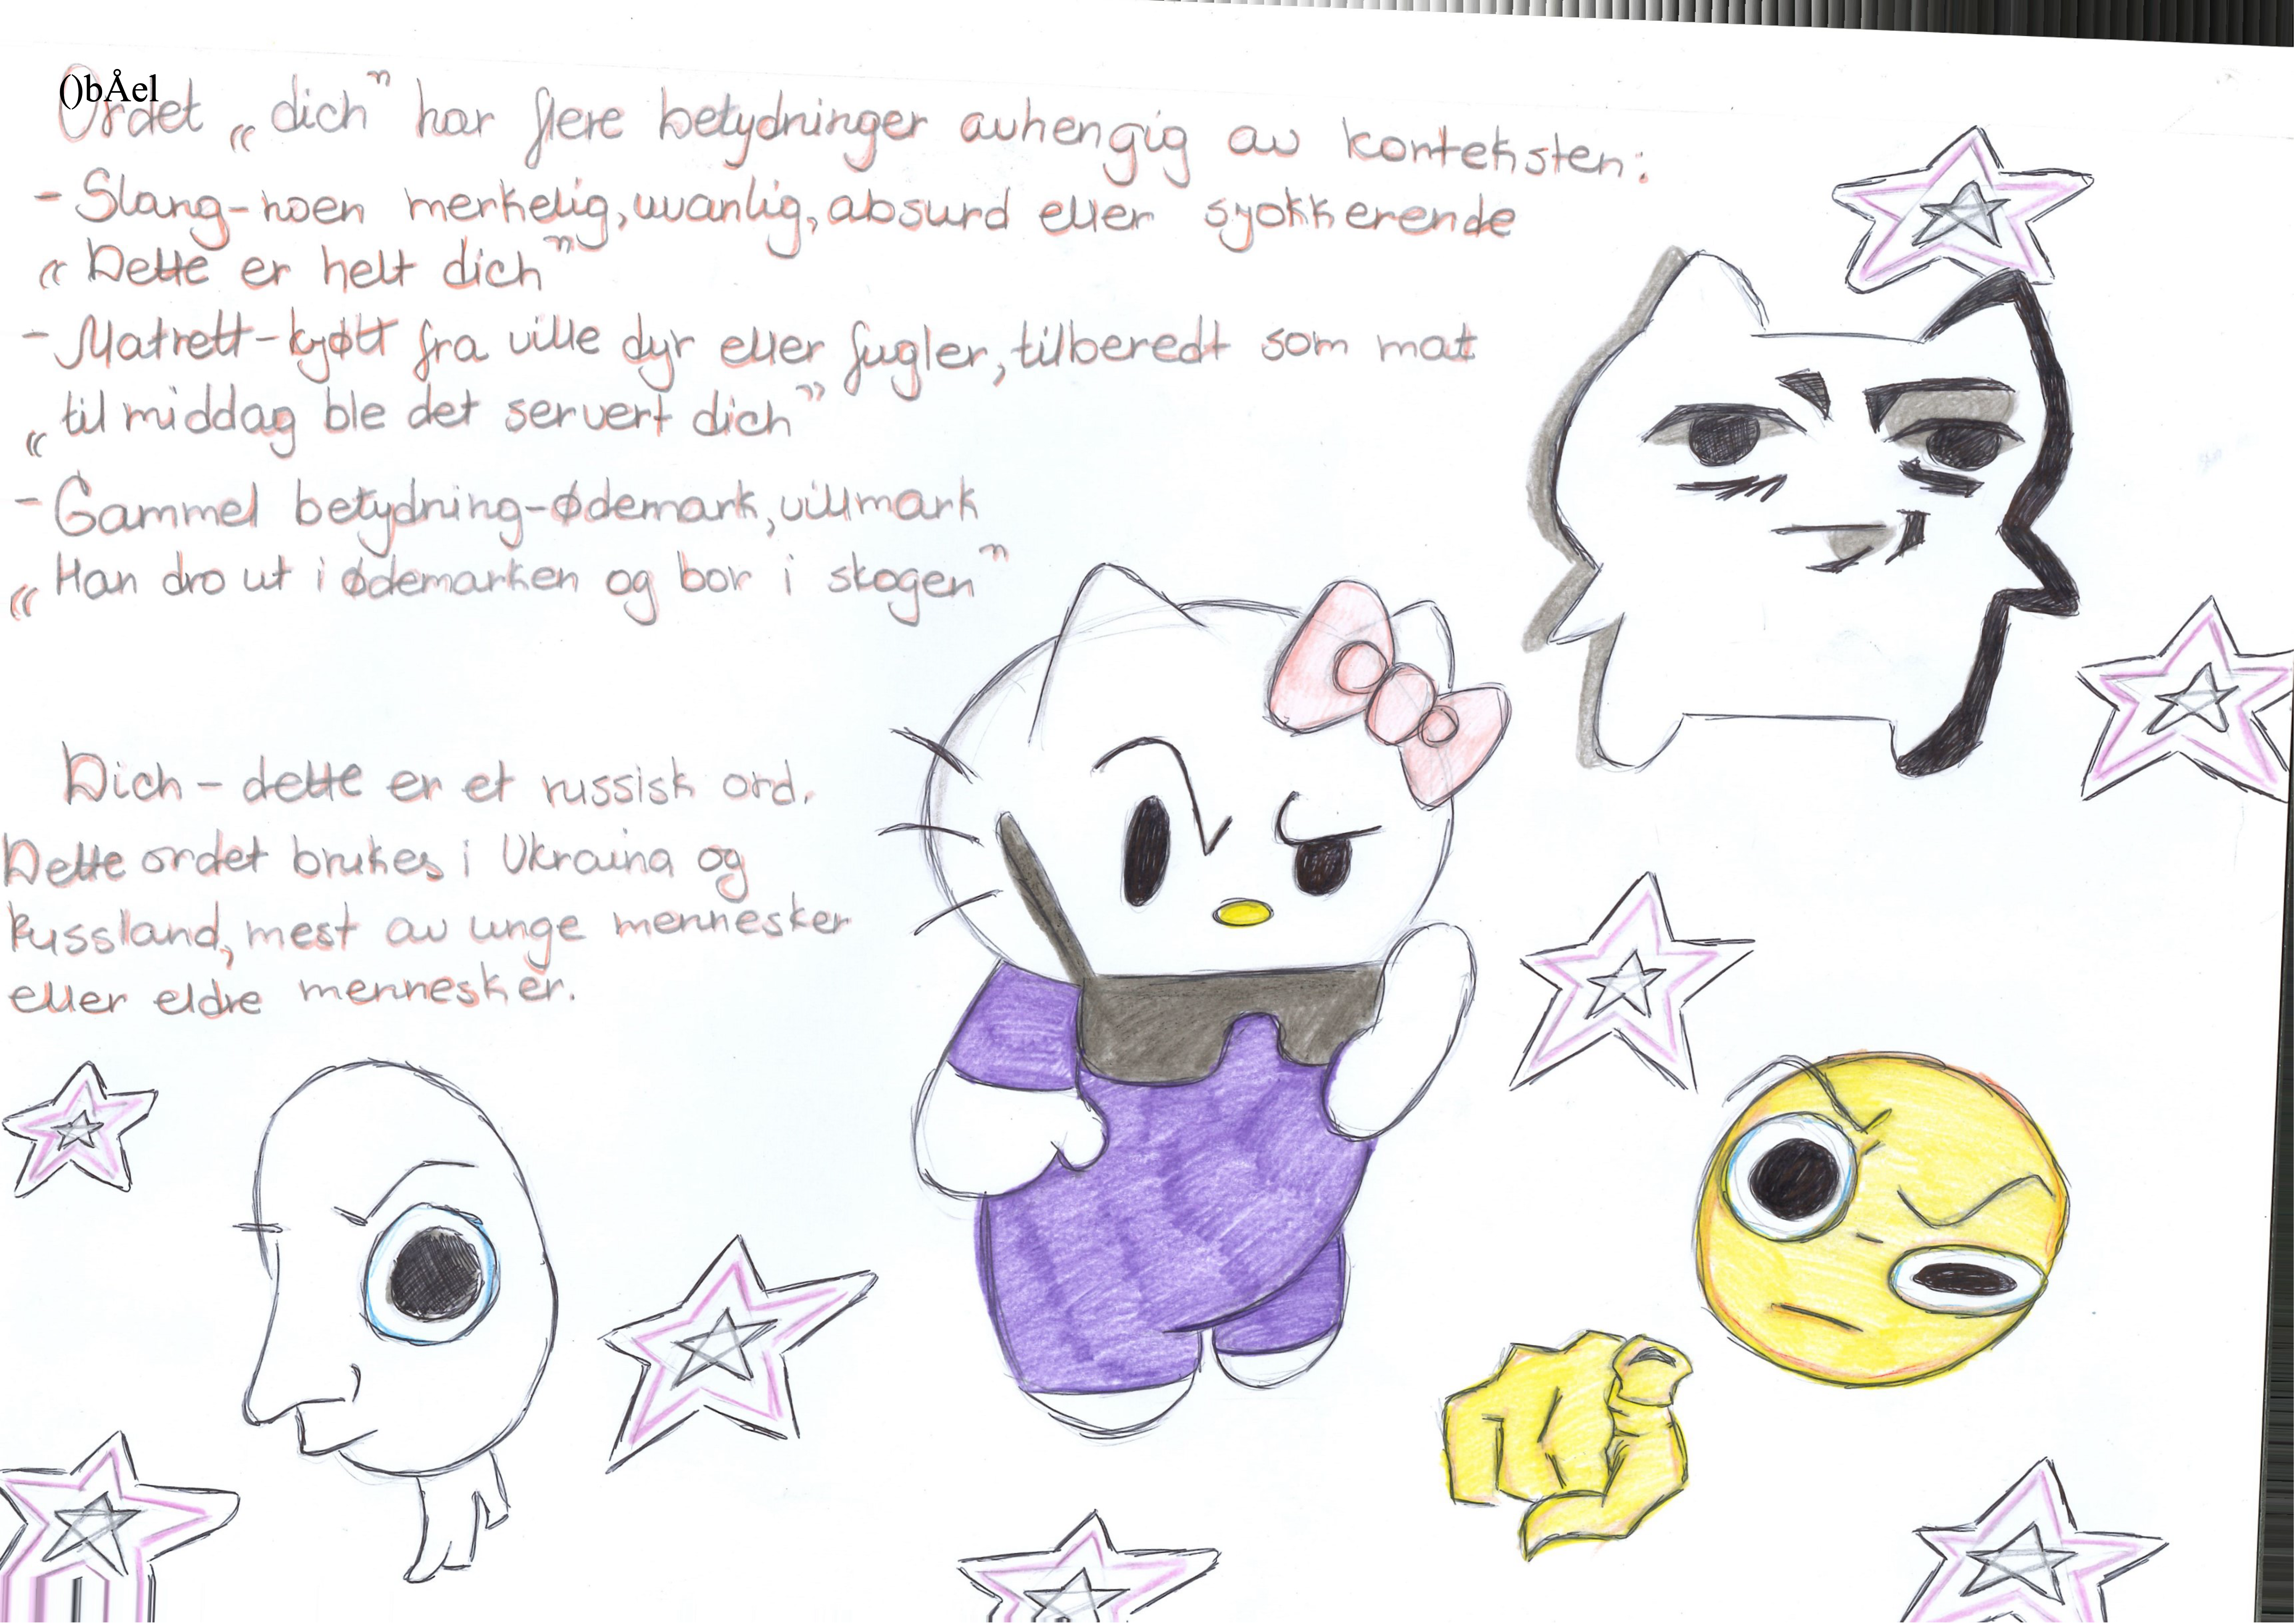 ()bÅel
Ordet „dich" har flere betydninger avhengig av konteksten:
- Slang-noen merkelig, uvanlig, absurd eller sjokkerende
„Dette er helt dich"
- Matrett-kjøtt fra ville dyr eller fugler, tilberedt som mat
„til middag ble det servert dich"
- Gammel betydning-ødemark, villmark
„Han dro ut i ødemarken og bor i skogen"
Dich - dette er et russisk ord.
Dette ordet brukes i Ukraina og
Russland, mest av unge mennesker
eller eldre mennesker.